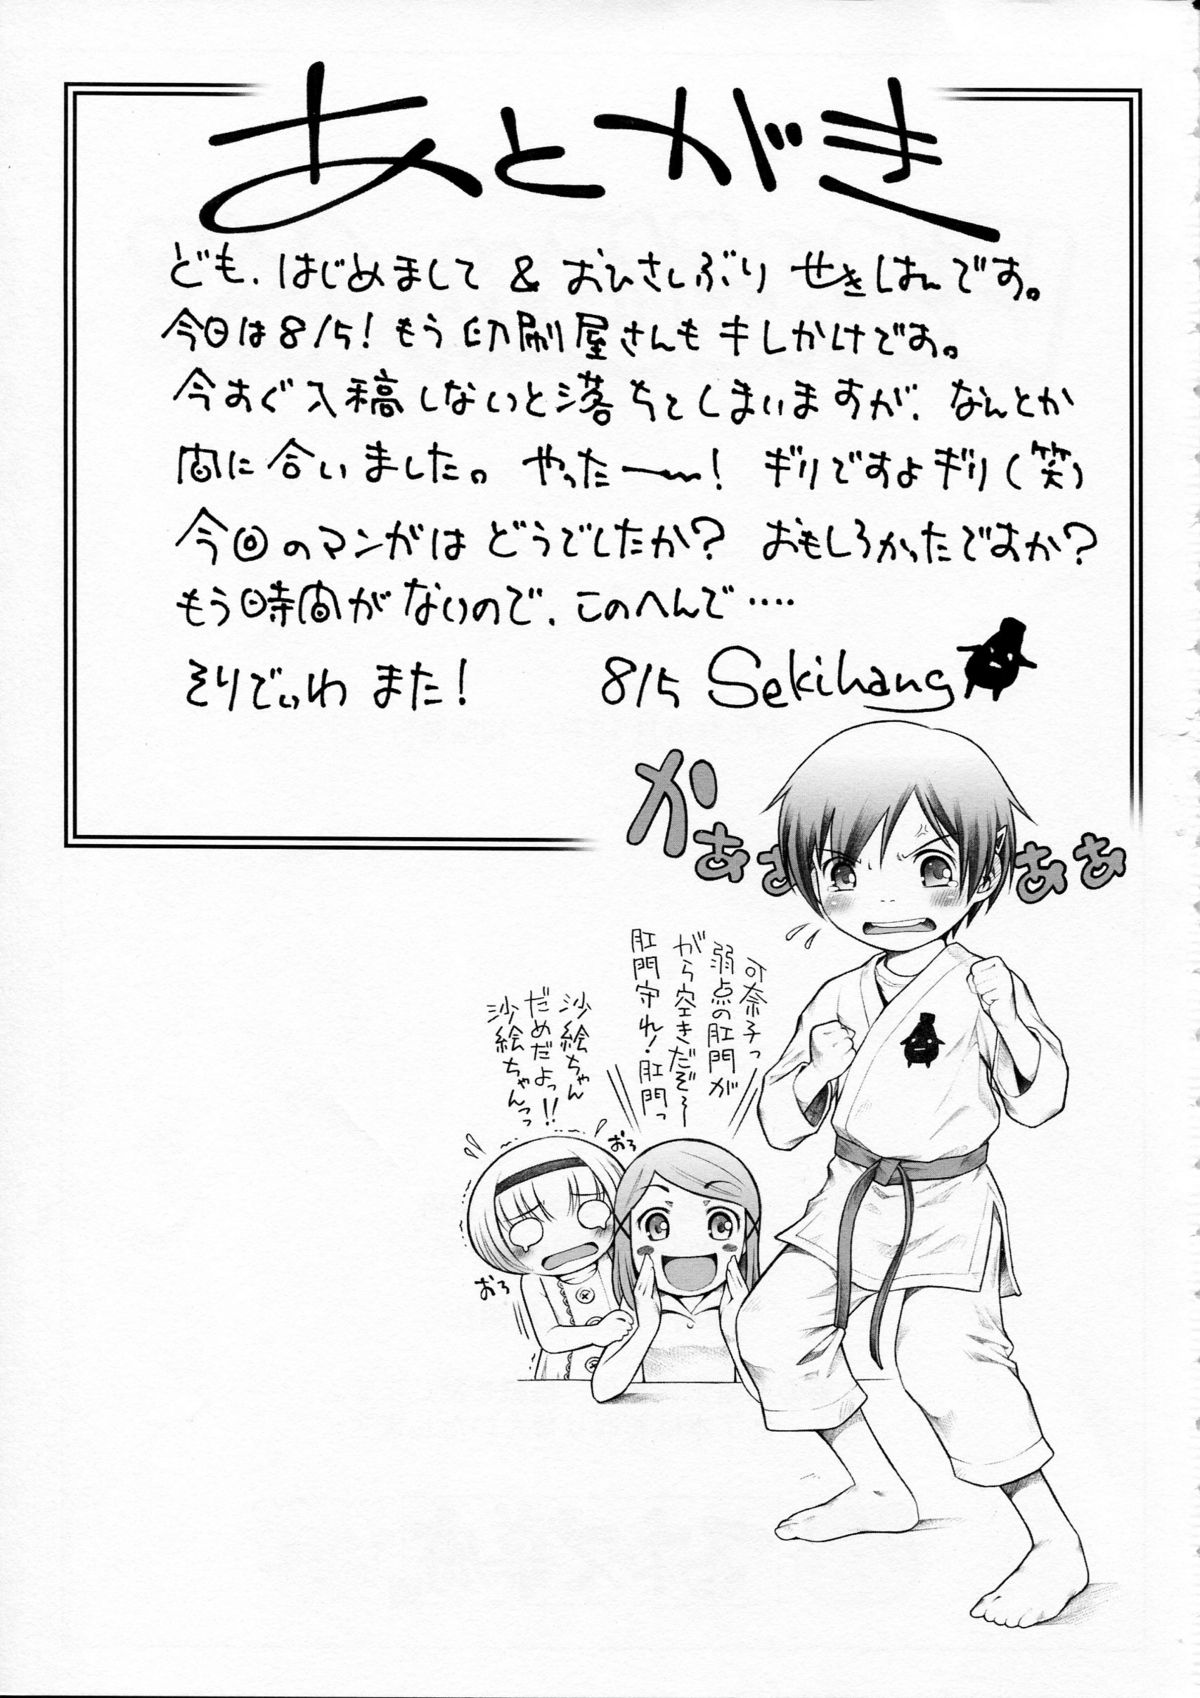 あとがき
ども、はじめまして & おひさしぶり せきはんです。
今日は8/5! もう 印刷屋さんもキレかけです。
今すぐ入稿しないと落ちてしまいますが、なんとか
間に合いました。やったー〜! ギリですよギリ(笑)
今回のマンガは どうでしたか? おもしろかったですか?
もう時間がないので、このへんで‥‥
そりでぃわ また! 8/5 Sekihang
かぁぁぁぁ
沙絵ちゃん
だめだよっ!!
沙絵ちゃんっ
おろ
おろ